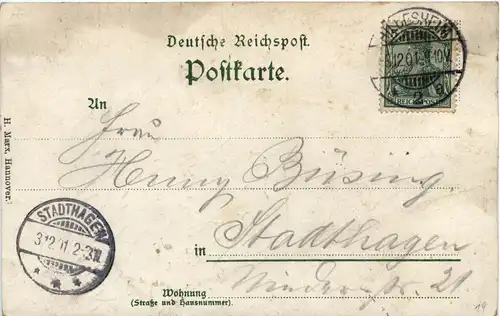 Deutsche Reichspost.
Postkarte.
HILDESHEIM
12 01
REICHSPOST
An
Frau
Henny Büsing
in Stadthagen
Niedernstr 21.
Wohnung
(Straße und Hausnummer).
H. Marx, Hannover.
STADTHAGEN
3 12 01 2-3N
* * *
19